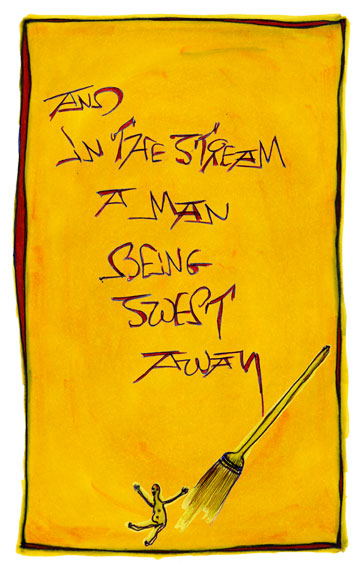 AND
IN THE STREAM
A MAN
BEING
SWEPT
AWAY